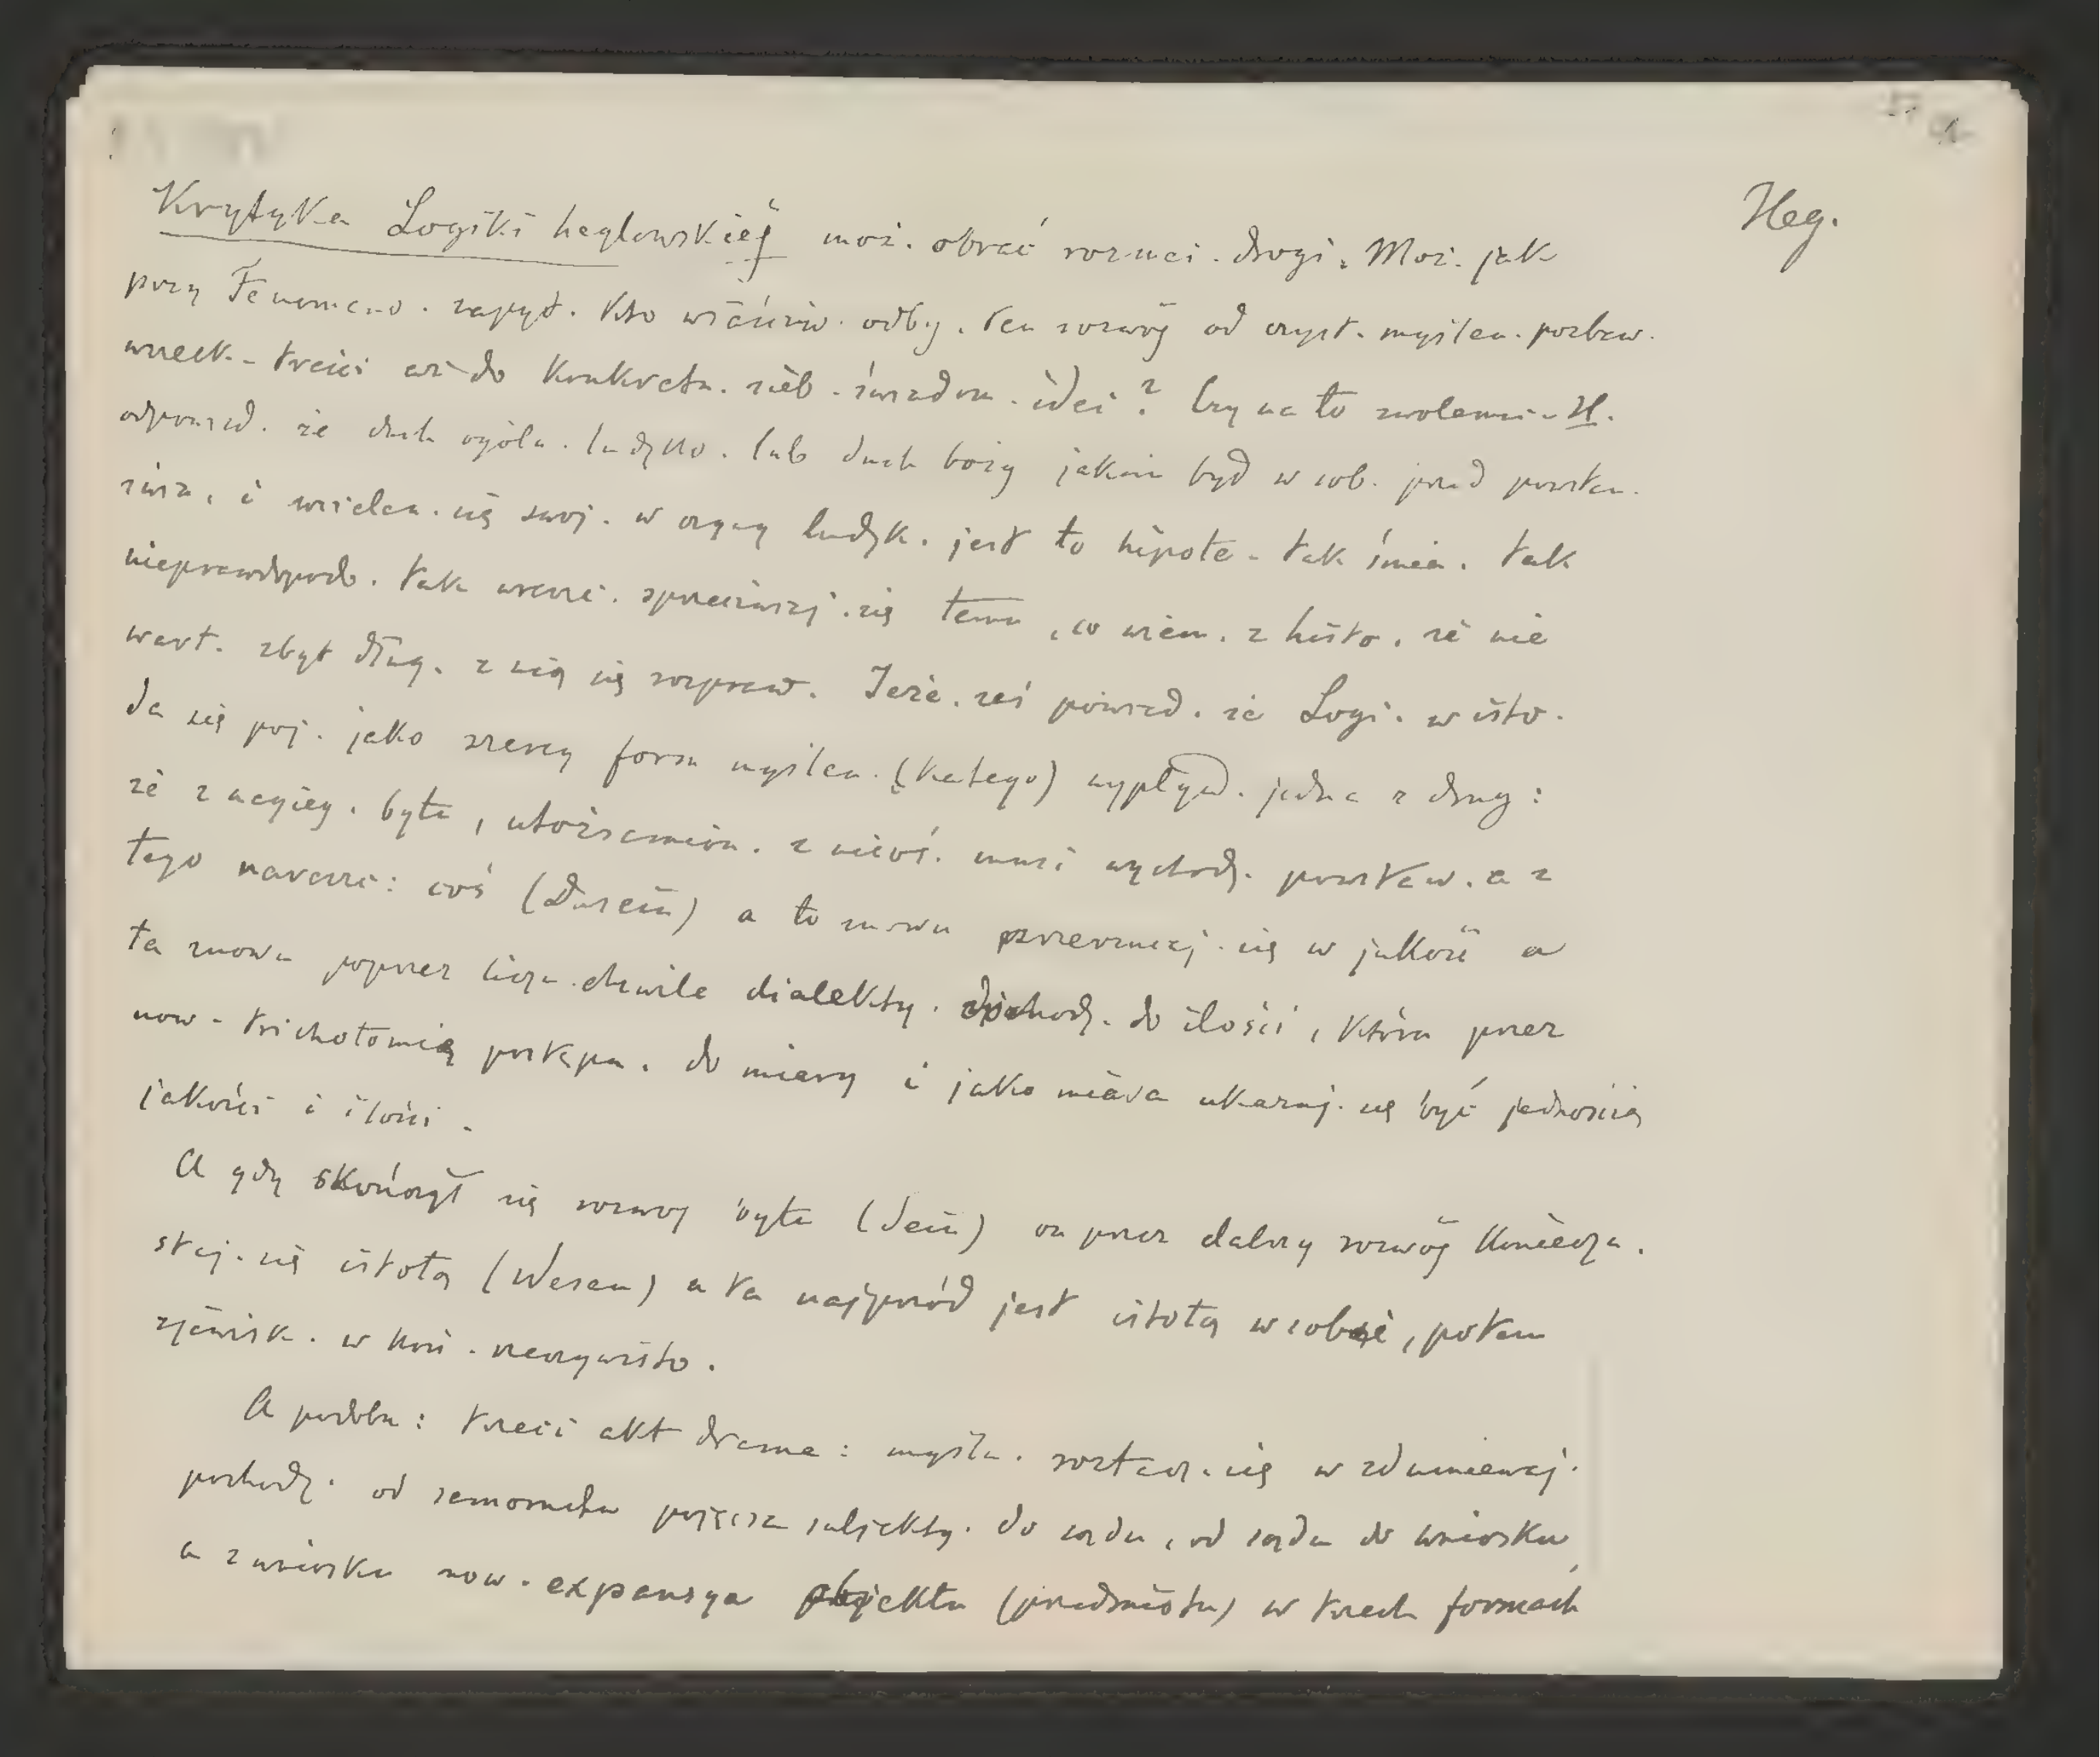 Heg.
Krytyka Logiki heglowskiej moż. obrać rozmai. drogi. Moż. jak
przy Fenomeno. zapyt. kto właściw. odby. ten rozwój od czyst. myślen. pozbaw.
wszelk. treści aż do konkretn. sieb. świadom. idei? Czy na to zwolenni. H.
odpowied. że duch ogóln. ludzko. lub duch boży jakim był w sob. przed powstan.
świa. i wciela. się swoj. w czyny ludzk. jest to hipote. tak śmia. tak
nieprawdopodob. tak wresz. sprzeciwiaj. się temu, co wiem. z histo. że nie
wart. zbyt dług. z nią się rozpraw. Jeże. zaś powied. że Logi. w isto.
da się poj. jako szereg form myślen. (katego) wypływ. jedna z drug:
że z nagieg. bytu, utożsamion. z nicoś. musi wychodz. powstaw. a z
tego nareszc: coś (Dasein) a to znowu przerzucaj. się w jakość a
ta znowu poprzez liczn. chwile dialekty. dochodz. do ilości, która przez
now. trichotomię postępu. do miary i jako miara ukazuj. się być jednością
jakości i ilości.
A gdy skończył się rozwój bytu (Sein) on przez dalszy rozwój konieczn.
staj. się istotą (Wesen) a ta najprzód jest istotą w sobie, potem
zjawisk. w koń. rzeczywisto.
A podobn: trzeci akt drama: myśln. roztacz. się w zdumiewaj.
pochodz. od samorodn pojęcia subjekty. do sądu, od sądu do wniosku,
a z wniosku now. expansya objektu (przedmiotu) w trzech formach